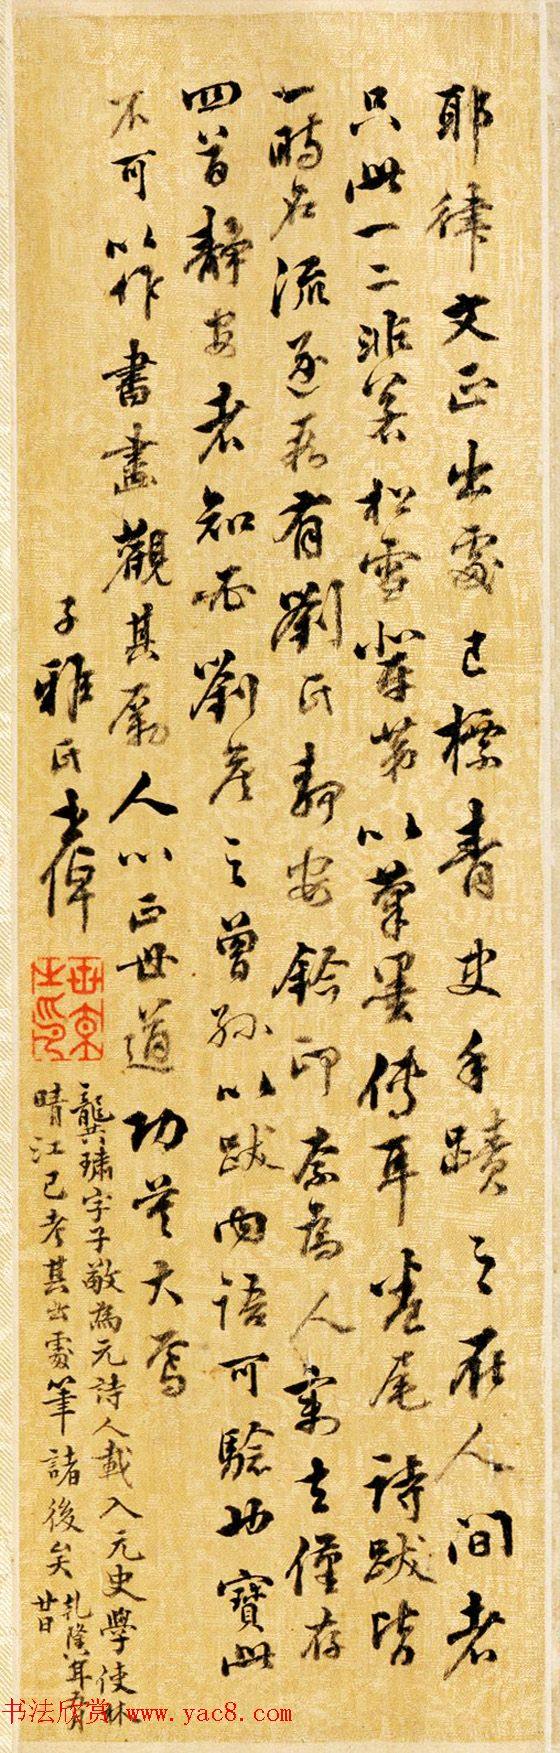 耶律文正出處已標青史手蹟之在人間者
只此一二非若松雪輩第以筆墨傳耳卷尾詩跋皆
一時名流逐段有劉氏靜安鈐印柰為人竊去僅存
四首靜安者知必劉彥之曾孫以跋內語可驗也寶此
不可以作書畫觀其勵人心正世道功莫大焉
子雅氏士倬
龔璛字子敬為元詩人載入元史學使林
晴江已考其出處筆諸後矣
乾隆年
廿日
书法欣赏www.yac8.com